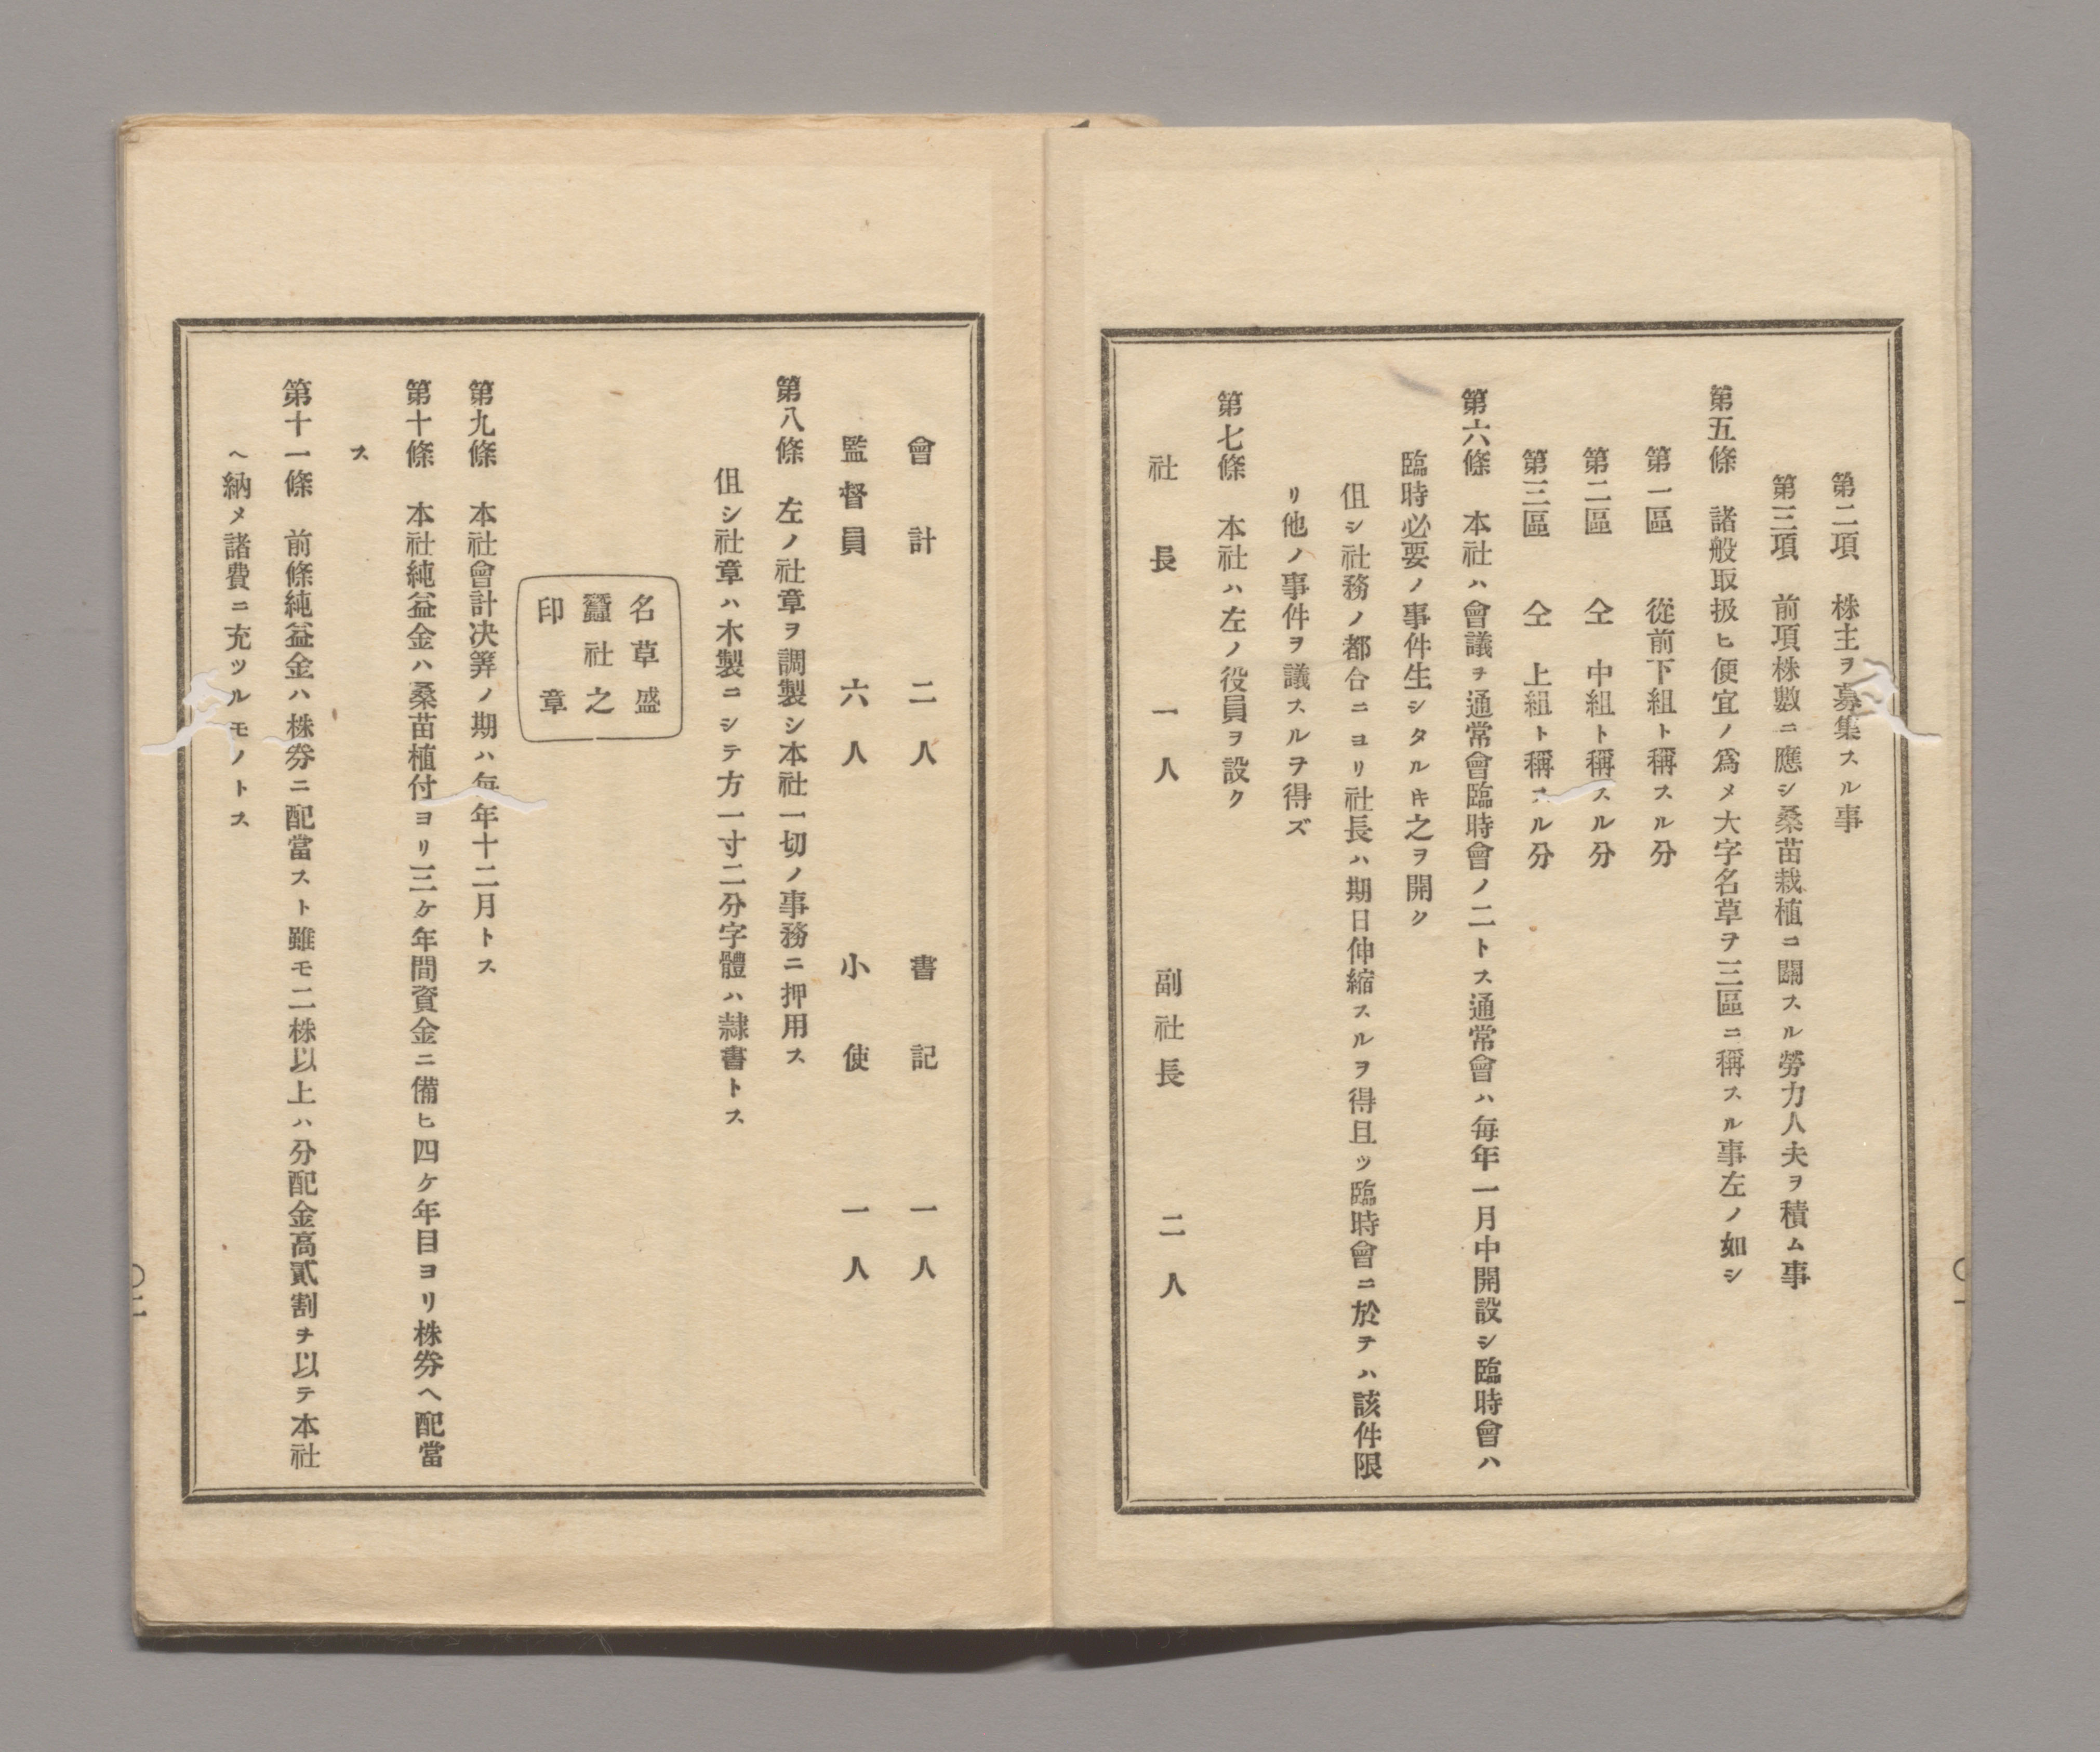 第二項　株主ヲ募集スル事
第三項　前項株數ニ應シ桑苗栽植ニ關スル勞力人夫ヲ積ム事
第五條　諸般取扱ヒ便宜ノ爲メ大字名草ヲ三區ニ稱スル事左ノ如シ
第一區　從前下組ト稱スル分
第二區　仝　中組ト稱スル分
第三區　仝　上組ト稱スル分
第六條　本社ハ會議ヲ通常會臨時會ノ二トス通常會ハ每年一月中開設シ臨時會ハ
臨時必要ノ事件生シタルキ之ヲ開ク
伹シ社務ノ都合ニヨリ社長ハ期日伸縮スルヲ得且ッ臨時會ニ於テハ該件限
リ他ノ事件ヲ議スルヲ得ズ
第七條　本社ハ左ノ役員ヲ設ク
社長　一人　副社長　二人
會計　二人　書記　一人
監督員　六人　小使　一人
第八條　左ノ社章ヲ調製シ本社一切ノ事務ニ押用ス
伹シ社章ハ木製ニシテ方一寸二分字體ハ隷書トス
名草盛
蠶社之
印章
第九條　本社會計决筭ノ期ハ每年十二月トス
第十條　本社純益金ハ桑苗植付ヨリ三ケ年間資金ニ備ヒ四ケ年目ヨリ株劵ヘ配當
ス
第十一條　前條純益金ハ株劵ニ配當スト雖モ二株以上ハ分配金高貳割ヲ以テ本社
ヘ納メ諸費ニ充ツルモノトス